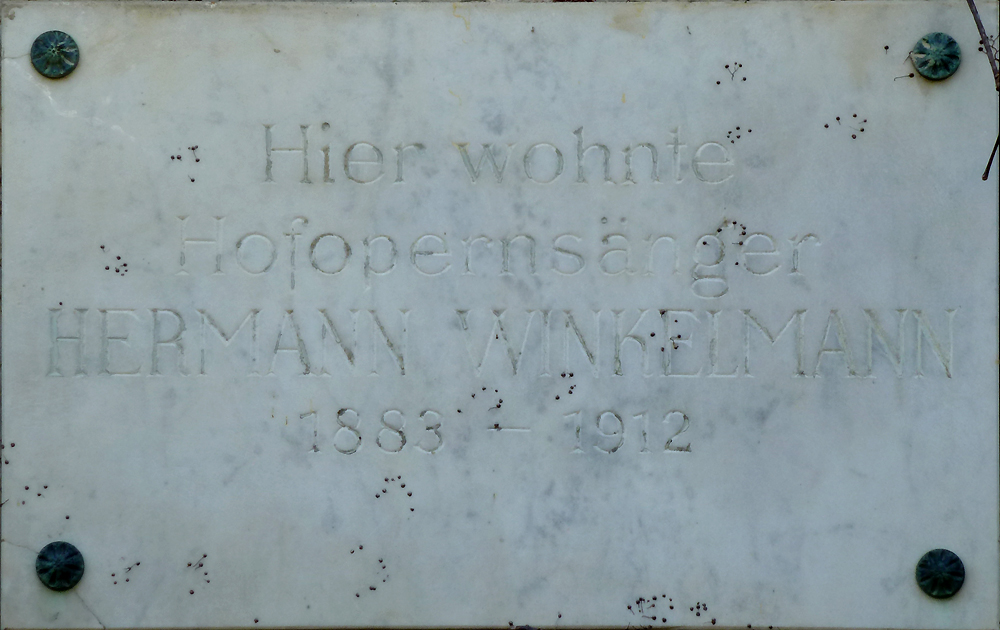 Hier wohnte
Hofopernsänger
HERMANN WINKELMANN
1883 – 1912